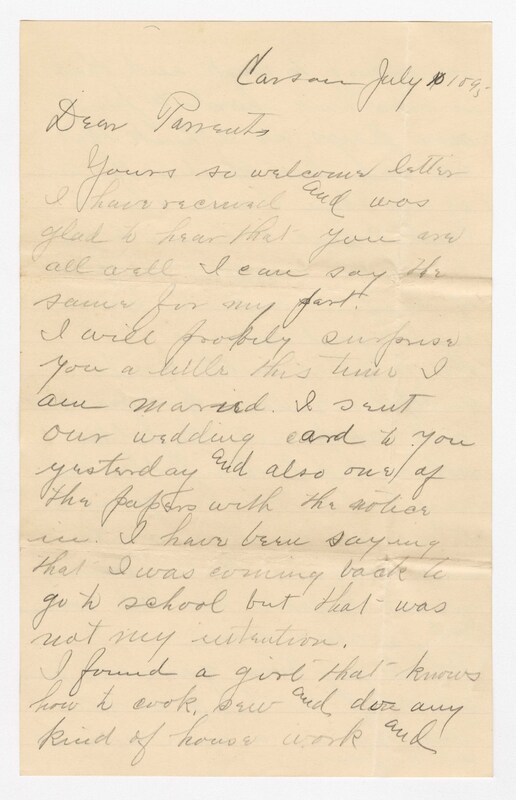 Carson July 1895
Dear Parrents
Yours so welcome letter
I have received and was
glad to hear that you are
all well I can say the
same for my part.
I will probly surprise
you a little this time I
am maried. I sent
our wedding card to you
yesterday and also one of
the papers with the notice
in. I have been saying
that I was coming back to
go to school but that was
not my intention.
I found a girl that knows
how to cook, sew and doe any
kind of house work and